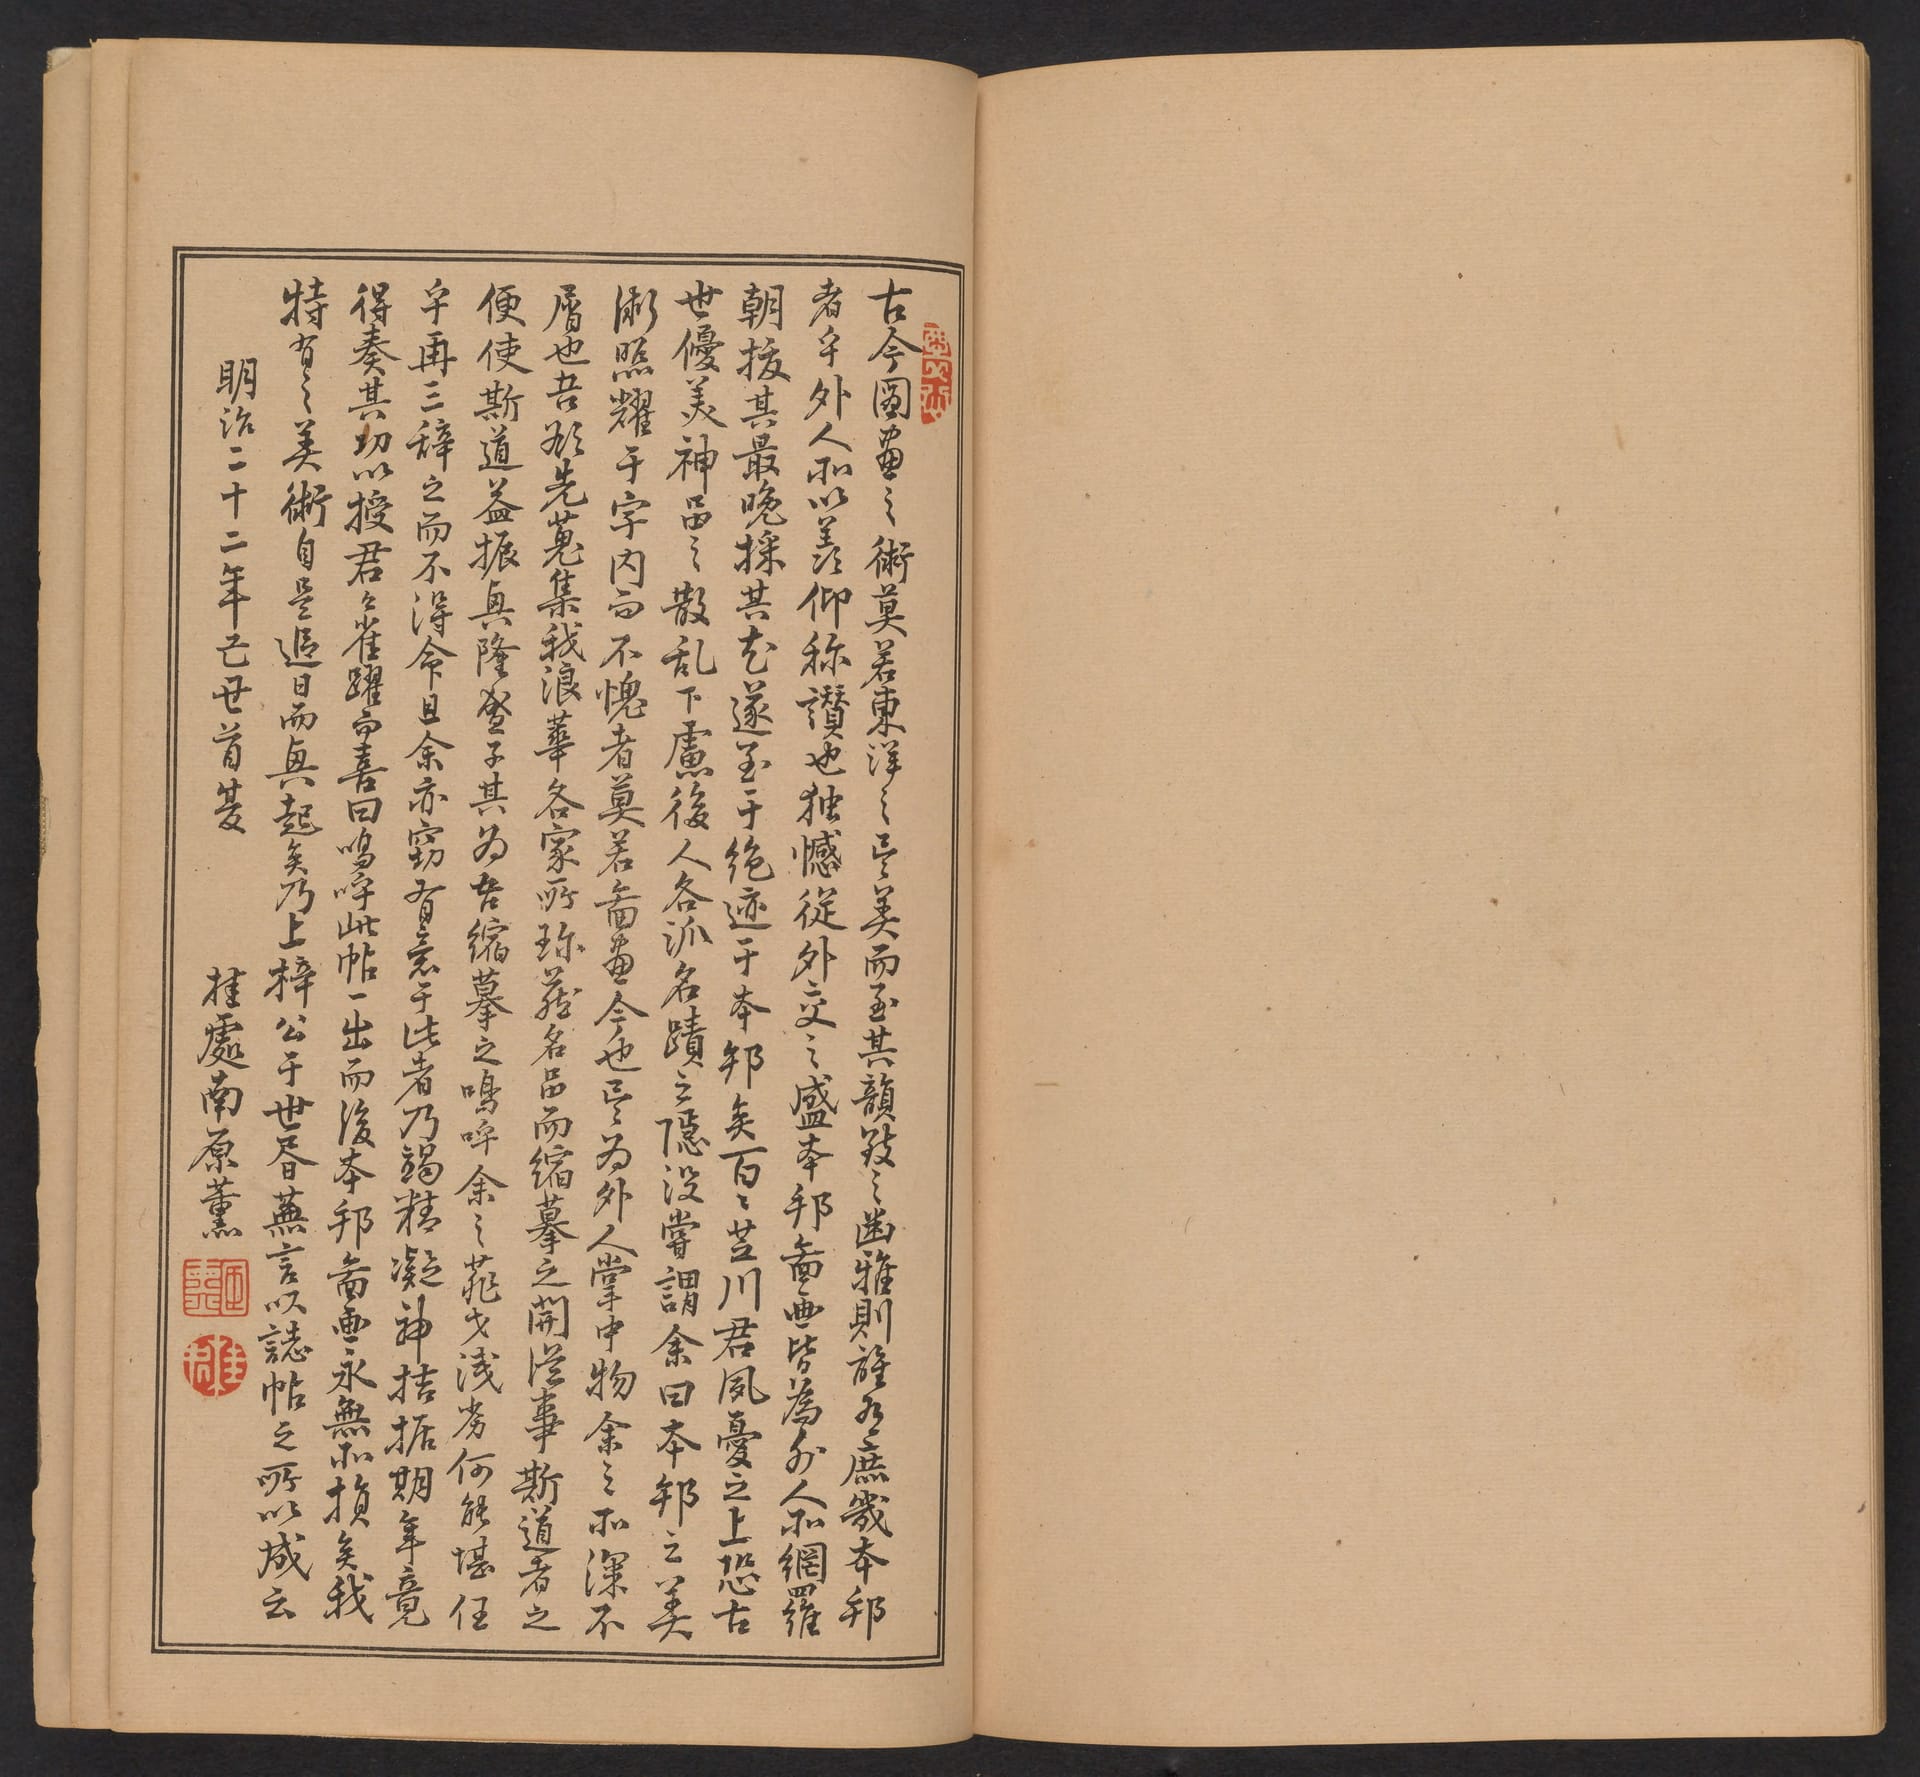 古今圖畫之術莫若東洋之尽美而至其韻致之幽雅則誰又庶幾本邦
者乎外人所以羨仰称讃也独憾従外交之盛本邦畵画皆為外人所網羅
朝抜其最晩採其尤遂至于絶迹于本邦矣百々芸川君夙憂之上恐古
世優美神品之散乱下慮後人各派名蹟之隠没嘗謂余曰本邦之美
術照耀于宇内而不愧者莫若畵畫今也尽為外人掌中物余之所深不
屑也吾欲先蒐集我浪華各家所珍蔵名品而縮摹之開従事斯道者之
便使斯道益振興隆盛子其為吾縮摹之嗚呼余之菲才浅劣何能堪任
乎再三辞之而不得命且余亦窃有意于此者乃竭精凝神拮据期年竟
得奏其功以授君々雀躍而喜曰嗚呼此帖一出而後本邦畵画永無所損矣我
特有之美術自是追日而興起矣乃上梓公于世春蕪言以誌帖之所以成云
明治二十二年己丑首夏
桂處南原薫